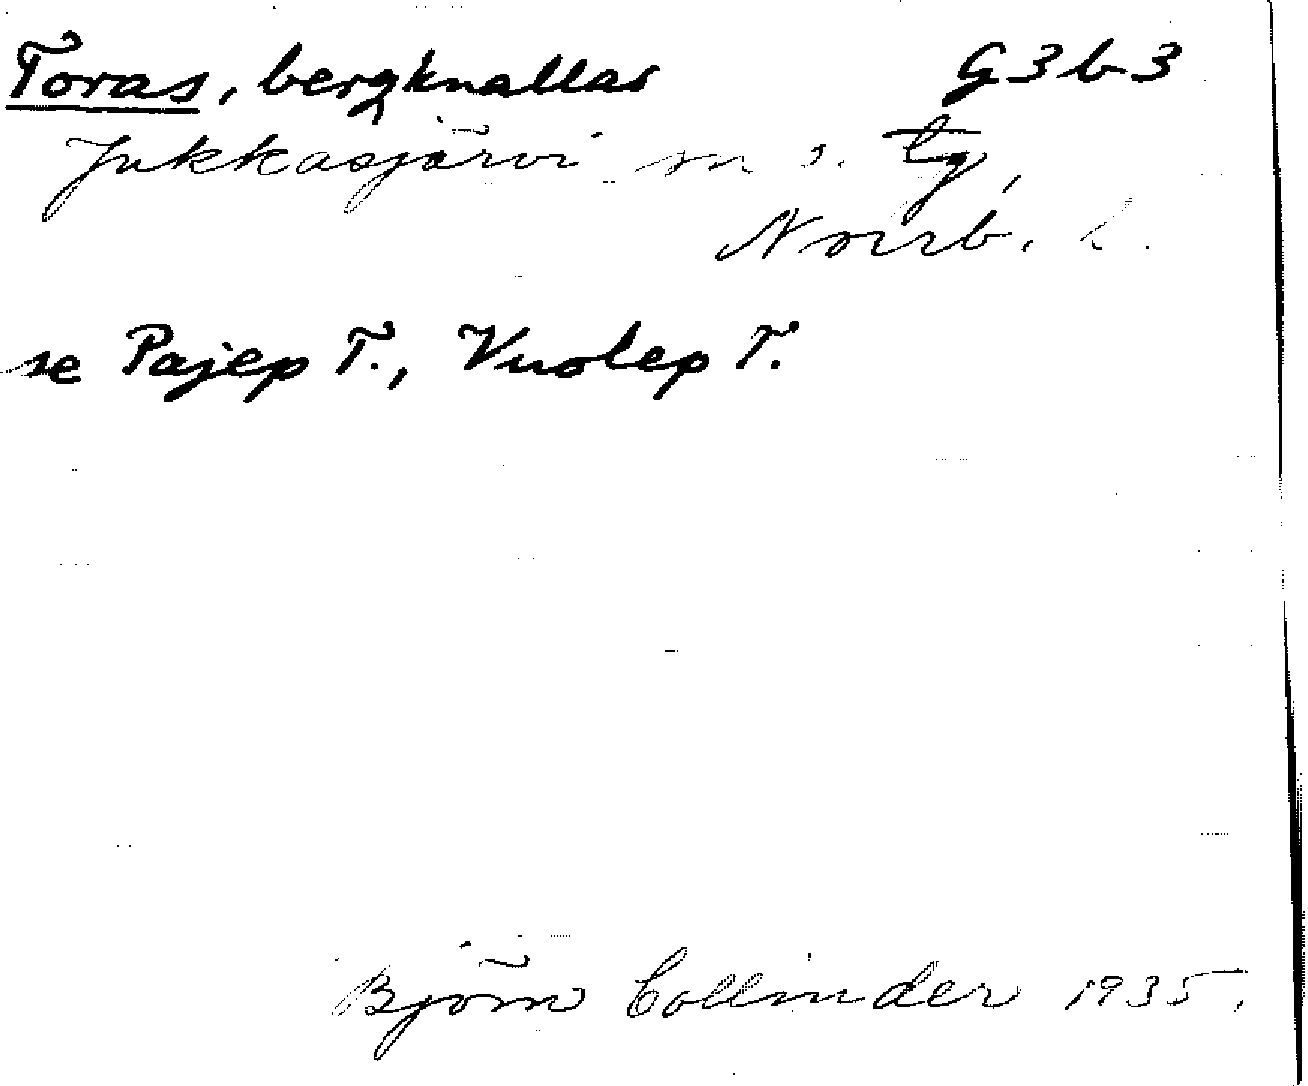 Toras, bergknallar G3b3
Jukkasjärvi sn o. tg,
Norrb. l.
se Pajep T., Vuolep T.
Björn Collinder 1935.